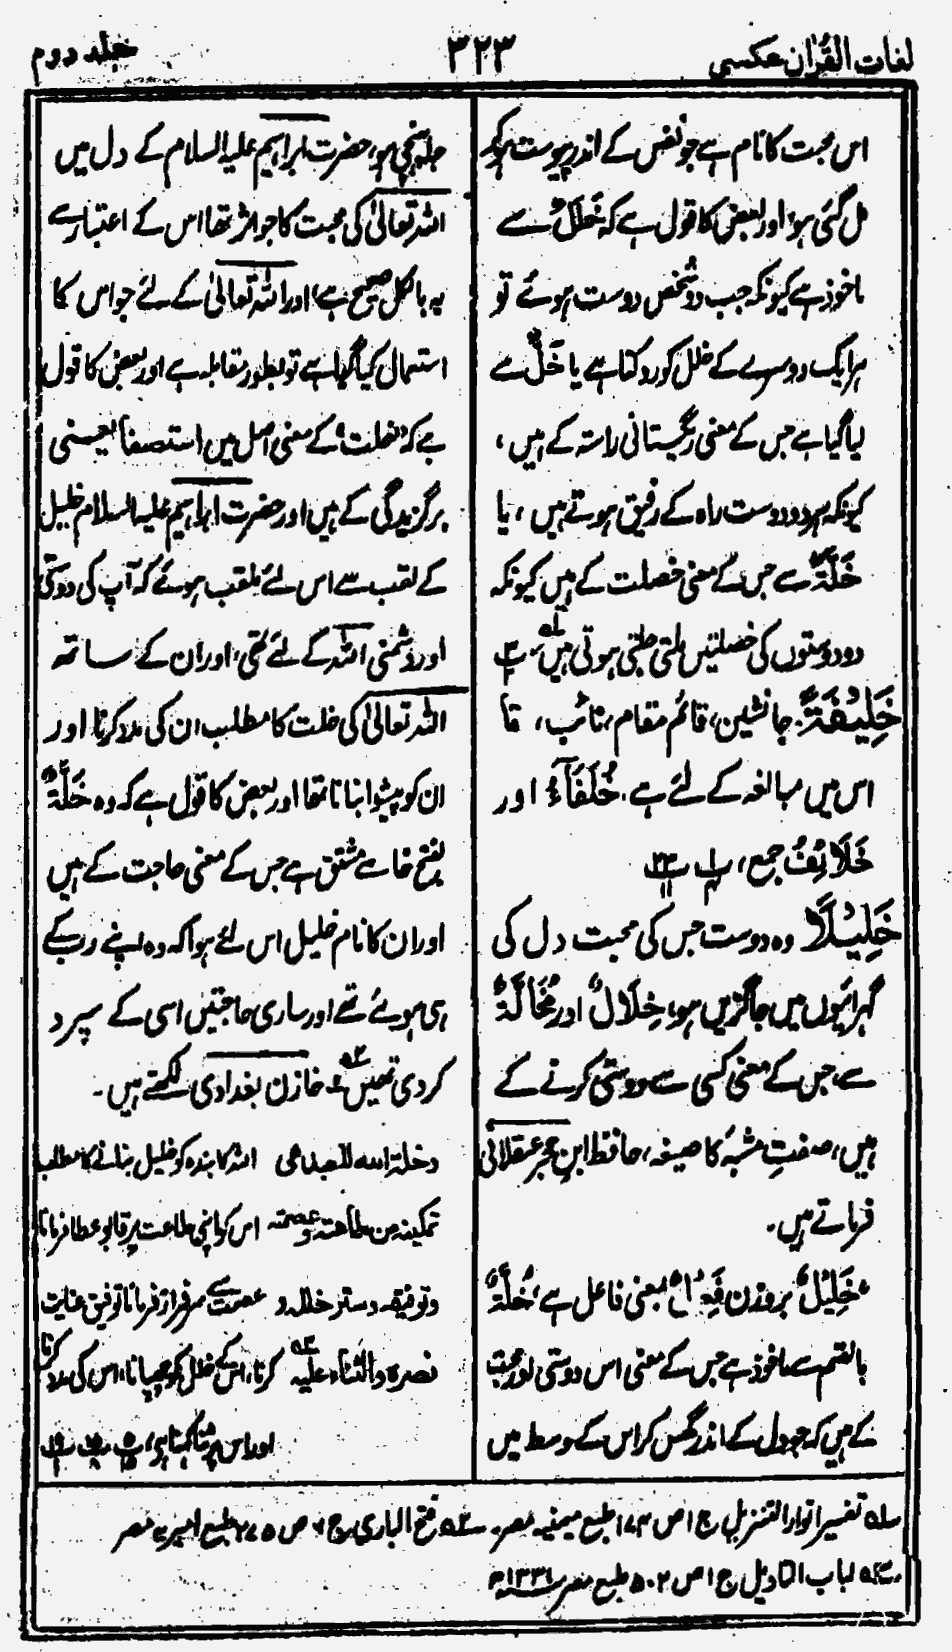 لغات القرآن عکسی
۳۲۳
جلد دوم
اس محبت کا نام ہے جو نفس کے اندر پیوست ہو کر
مل گئی ہو، اور بعض کا قول ہے کہ خَلَلٌ سے
ماخوذ ہے کیونکہ جب دو شخص دوست ہوئے تو
ہر ایک دوسرے کے خلل کو روکتا ہے یا خَلٌّ سے
لیا گیا ہے جس کے معنی ریگستانی راستہ کے ہیں،
کیونکہ ہر دو دوست راہ کے رفیق ہوتے ہیں، یا
خَلَّۃٌ سے جس کے معنی خصلت کے ہیں کیونکہ
دو دوستوں کی خصلتیں ملتی جلتی ہوتی ہیں
خَلِیْفَۃً جانشین، قائم مقام، نائب، ۃا
اس میں مبالغہ کے لئے ہے۔ خُلَفَآءُ اور
خَلَائِفُ جمع،
خَلِیْلًا وہ دوست جس کی محبت دل کی
گہرائیوں میں جاگزیں ہو، خِلَالٌ اور مُخَالَّۃٌ
سے جس کے معنی کسی سے دوستی کرنے کے
ہیں، صفتِ مشبہ کا صیغہ، حافظ ابنِ حجر عسقلانی
فرماتے ہیں۔
خَلِیْلٌ بروزن فَعِیْلٌ بمعنی فاعل ہے خُلَّۃٌ
بالضم سے ماخوذ ہے جس کے معنی اس دوستی اور محبت
کے ہیں کہ جو دل کے اندر گھس کر اس کے وسط میں
جا پہنچی ہو، حضرت ابراہیم علیہ السلام کے دل میں
اللہ تعالیٰ کی محبت کا جو اثر تھا اس کے اعتبار سے
یہ بالکل صحیح ہے، اور اللہ تعالیٰ کے لئے جو اس کا
استعمال کیا گیا ہے تو بطور مقابلہ ہے اور بعض کا قول
ہے کہ "خلت" کے معنی اصل میں استصفا یعنی
برگزیدگی کے ہیں اور حضرت ابراہیم علیہ السلام خلیل
کے لقب سے اس لئے ملقب ہوئے کہ آپ کی دوستی
اور دشمنی اللہ کے لئے تھی، اور ان کے ساتھ
اللہ تعالیٰ کی خلت کا مطلب ان کی مدد کرنا اور
ان کو پیشوا بنانا تھا اور بعض کا قول ہے کہ وہ خَلَّۃٌ
بفتح خا سے مشتق ہے جس کے معنی حاجت کے ہیں
اور ان کا نام خلیل اس لئے ہوا کہ وہ اپنے رب کے
ہی ہوئے تھے اور ساری حاجتیں اسی کے سپرد
کر دی تھیں ۲؎ خازن بغدادی لکھتے ہیں۔
وخلۃ اللہ للعبد ھی اللہ کا بندہ کو خلیل بنانے کا مطلب
تمکینہ من طاعتہ وعصمتہ اس کو اپنی طاعت پر قابو عطا فرمانا
وتوفیقہ وستر خللہ و عصمت سے سرفراز فرمانا توفیق عنایت
نصرتہ والثناء علیہ ۳؎ کرنا، اس کے خلل کو چھپانا، اس کی مدد کرنا
اور اس پر ثنا کہنا ہے،
۱؎ تفسیر انوار التنزیل ج ۱ ص ۱۷۳ طبع میمنیہ مصر۔ ۲؎ فتح الباری ج ۶ ص ۲۷۵ طبع امیریہ مصر
۳؎ لباب التاویل ج ۱ ص ۵۰۲ طبع مصر ۱۳۳۱ھ